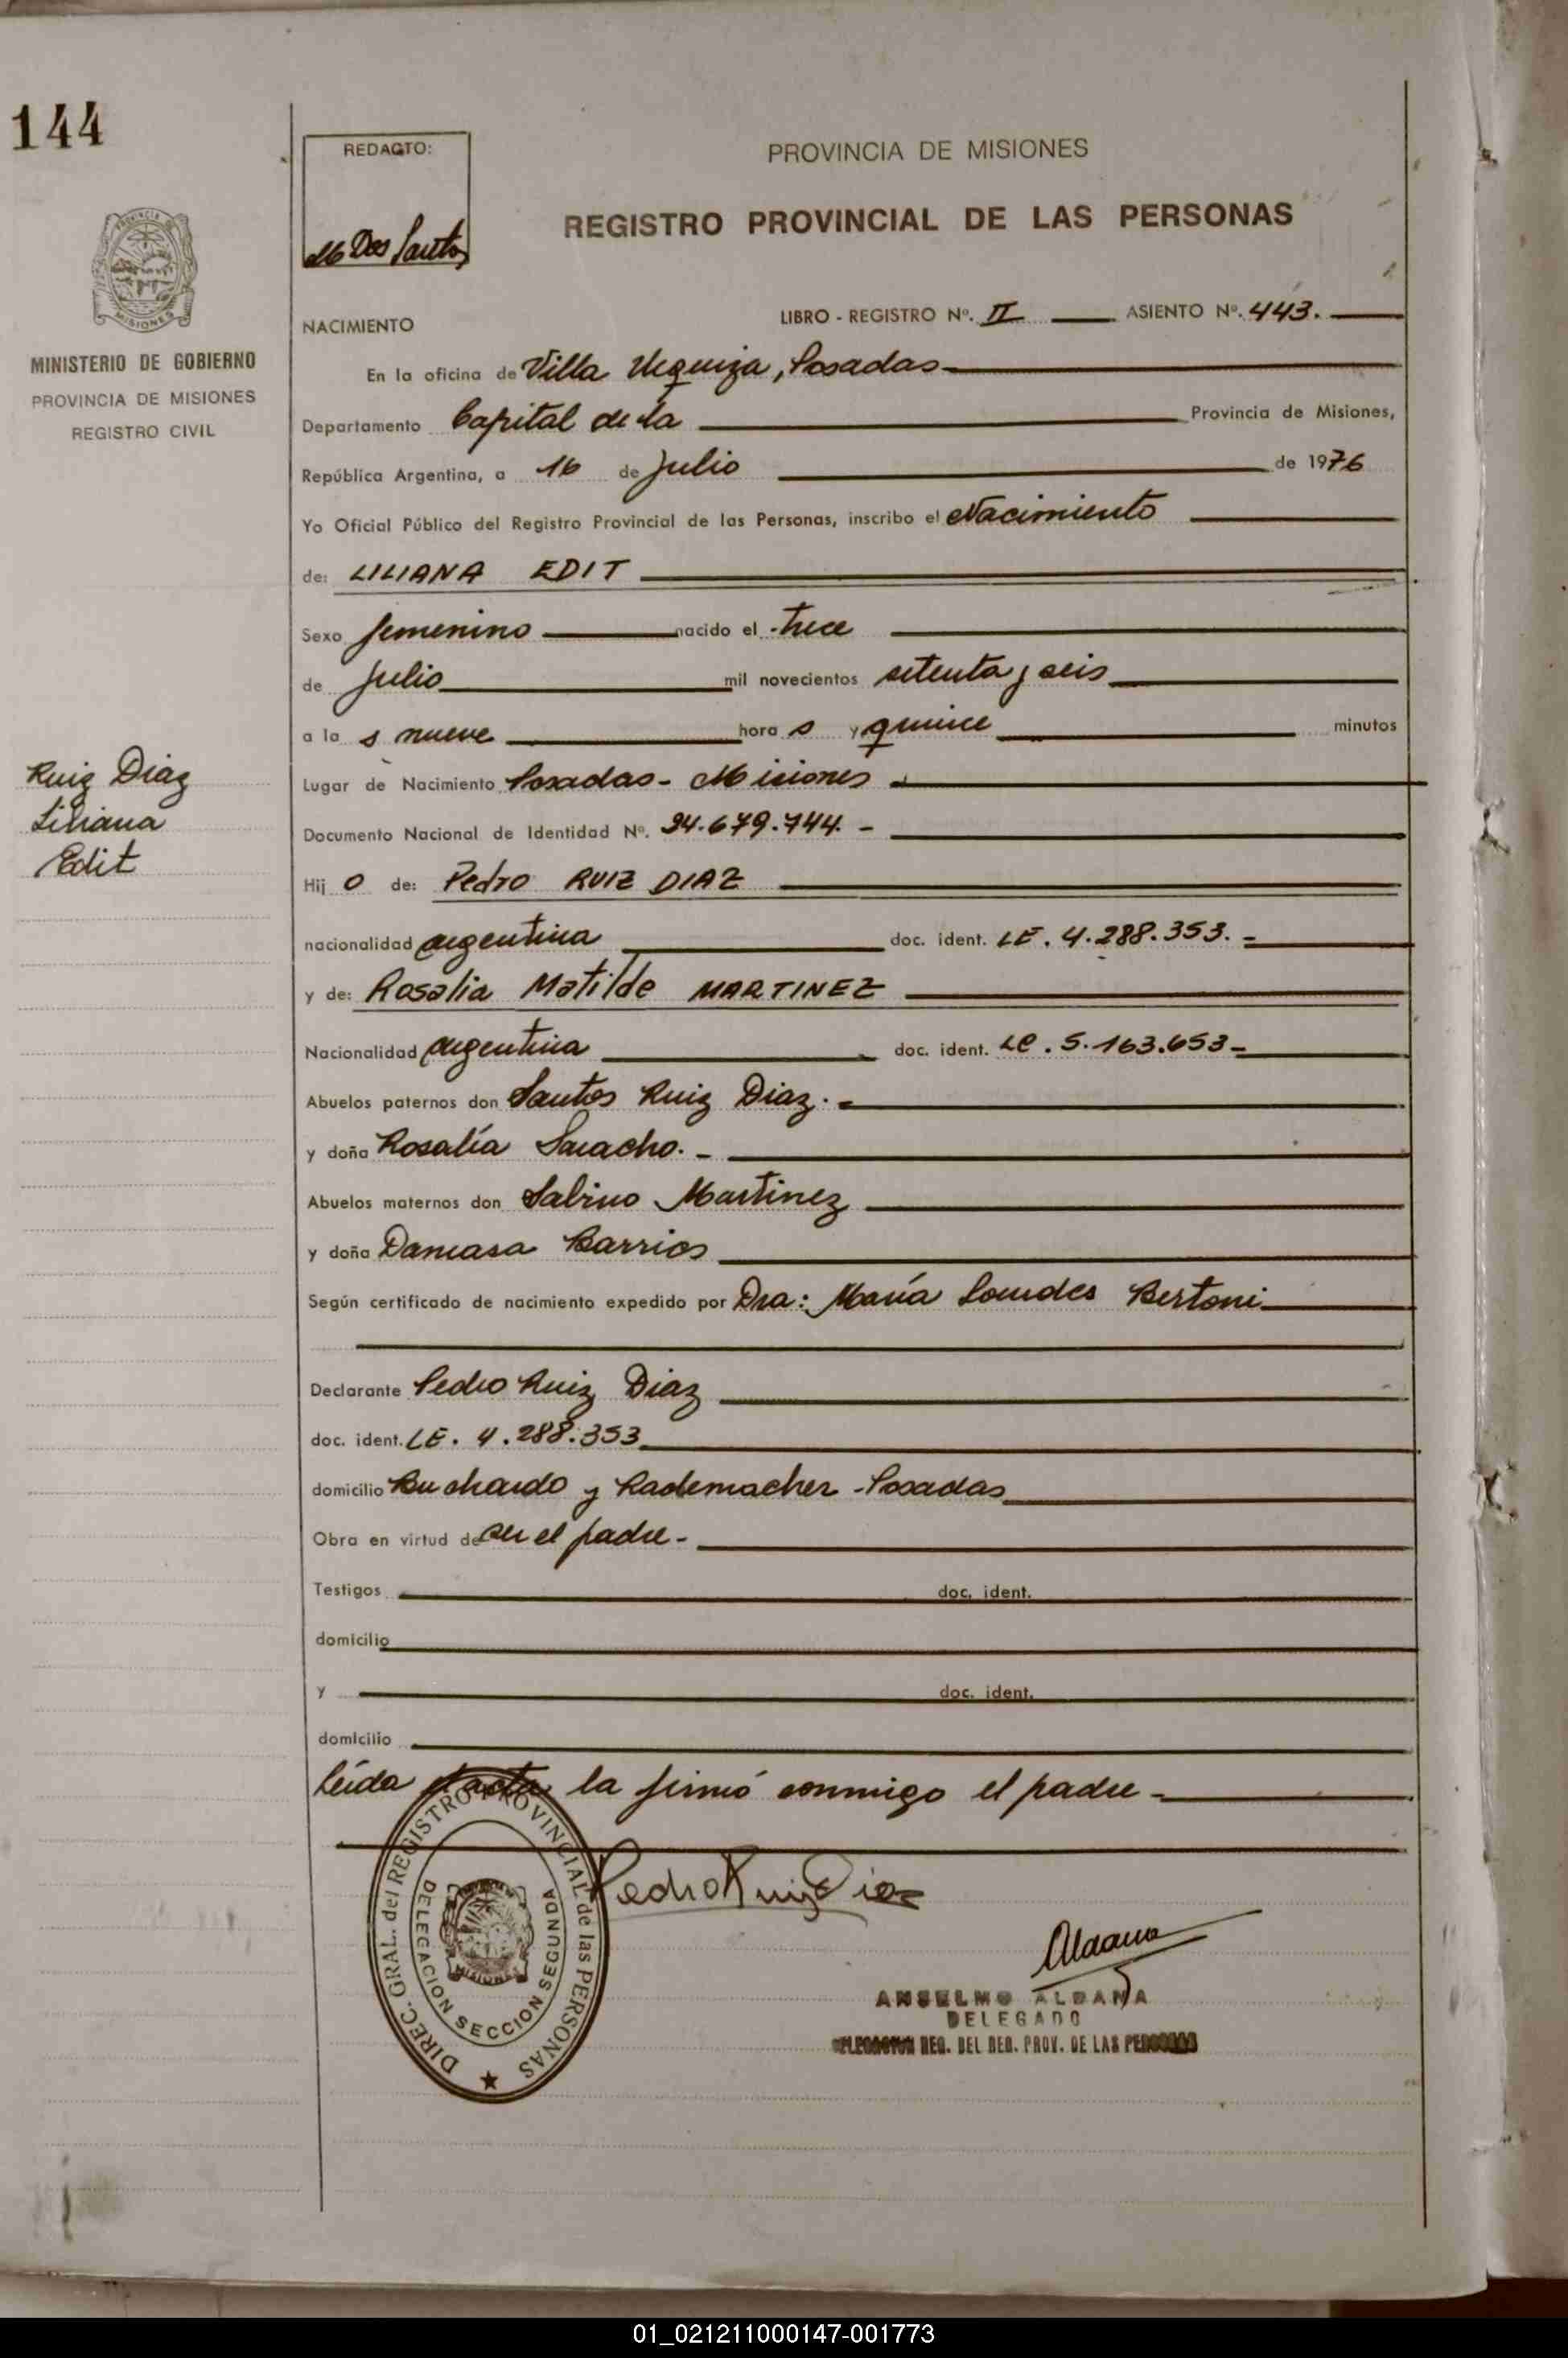 144
REDACTO:
M Dos Santos
PROVINCIA DE MISIONES
REGISTRO PROVINCIAL DE LAS PERSONAS
MISIONES
MINISTERIO DE GOBIERNO
PROVINCIA DE MISIONES
REGISTRO CIVIL
NACIMIENTO
LIBRO - REGISTRO Nº. II ASIENTO Nº. 443.
En la oficina de Villa Urquiza, Posadas
Departamento Capital de la Provincia de Misiones,
República Argentina, a 16 de Julio de 1976
Yo Oficial Público del Registro Provincial de las Personas, inscribo el Nacimiento
de: LILIANA EDIT
Sexo femenino nacido el trece
de Julio mil novecientos setenta y seis
a la s nueve hora s y quince minutos
Ruiz Diaz
Liliana
Edit
Lugar de Nacimiento Posadas - Misiones
Documento Nacional de Identidad Nº. 24.679.744. -
Hij o de: Pedro RUIZ DIAZ
nacionalidad argentina doc. ident. LE. 4.288.353. =
y de: Rosalia Matilde MARTINEZ
Nacionalidad argentina doc. ident. LC. 5.163.653 -
Abuelos paternos don Santos Ruiz Diaz. =
y doña Rosalía Saracho. -
Abuelos maternos don Sabino Martinez
y doña Damasa Barrios
Según certificado de nacimiento expedido por Dra: María Lourdes Bertoni
Declarante Pedro Ruiz Diaz
doc. ident. LE. 4.288.353
domicilio Buchardo y Rademacher - Posadas
Obra en virtud de ser el padre -
Testigos doc. ident.
domicilio
y doc. ident.
domicilio
Leída el acta la firmó conmigo el padre -
DIREC. GRAL. del REGISTRO PROVINCIAL de las PERSONAS
DELEGACION SECCION SEGUNDA
MISIONES
Pedro Ruiz Diaz
Aldana
ANSELMO ALDANA
DELEGADO
REG. DEL REG. PROV. DE LAS PERSONAS
01_021211000147-001773